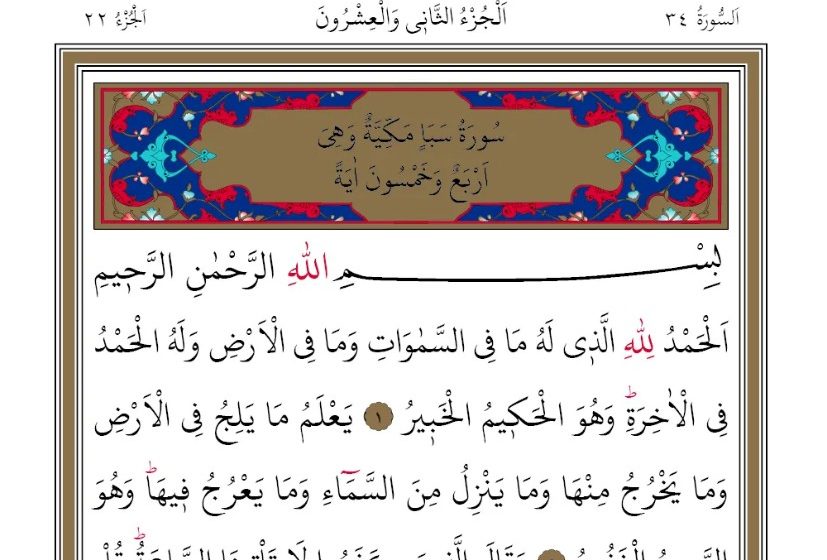 اَلسُّورَةُ ٣٤ اَلْجُزْءُ الثَّانٖي وَالْعِشْرُونَ اَلْجُزْءُ ٢٢
سُورَةُ سَبَأٍ مَكِّيَّةٌ وَهِيَ
اَرْبَعٌ وَخَمْسُونَ اٰيَةً
بِسْمِ اللّٰهِ الرَّحْمٰنِ الرَّحٖيمِ
اَلْحَمْدُ لِلّٰهِ الَّذٖي لَهُ مَا فِي السَّمٰوَاتِ وَمَا فِي الْاَرْضِ وَلَهُ الْحَمْدُ
فِي الْاٰخِرَةِؕ وَهُوَ الْحَكٖيمُ الْخَبٖيرُ ١ يَعْلَمُ مَا يَلِجُ فِي الْاَرْضِ
وَمَا يَخْرُجُ مِنْهَا وَمَا يَنْزِلُ مِنَ السَّمَٓاءِ وَمَا يَعْرُجُ فٖيهَاؕ وَهُوَ